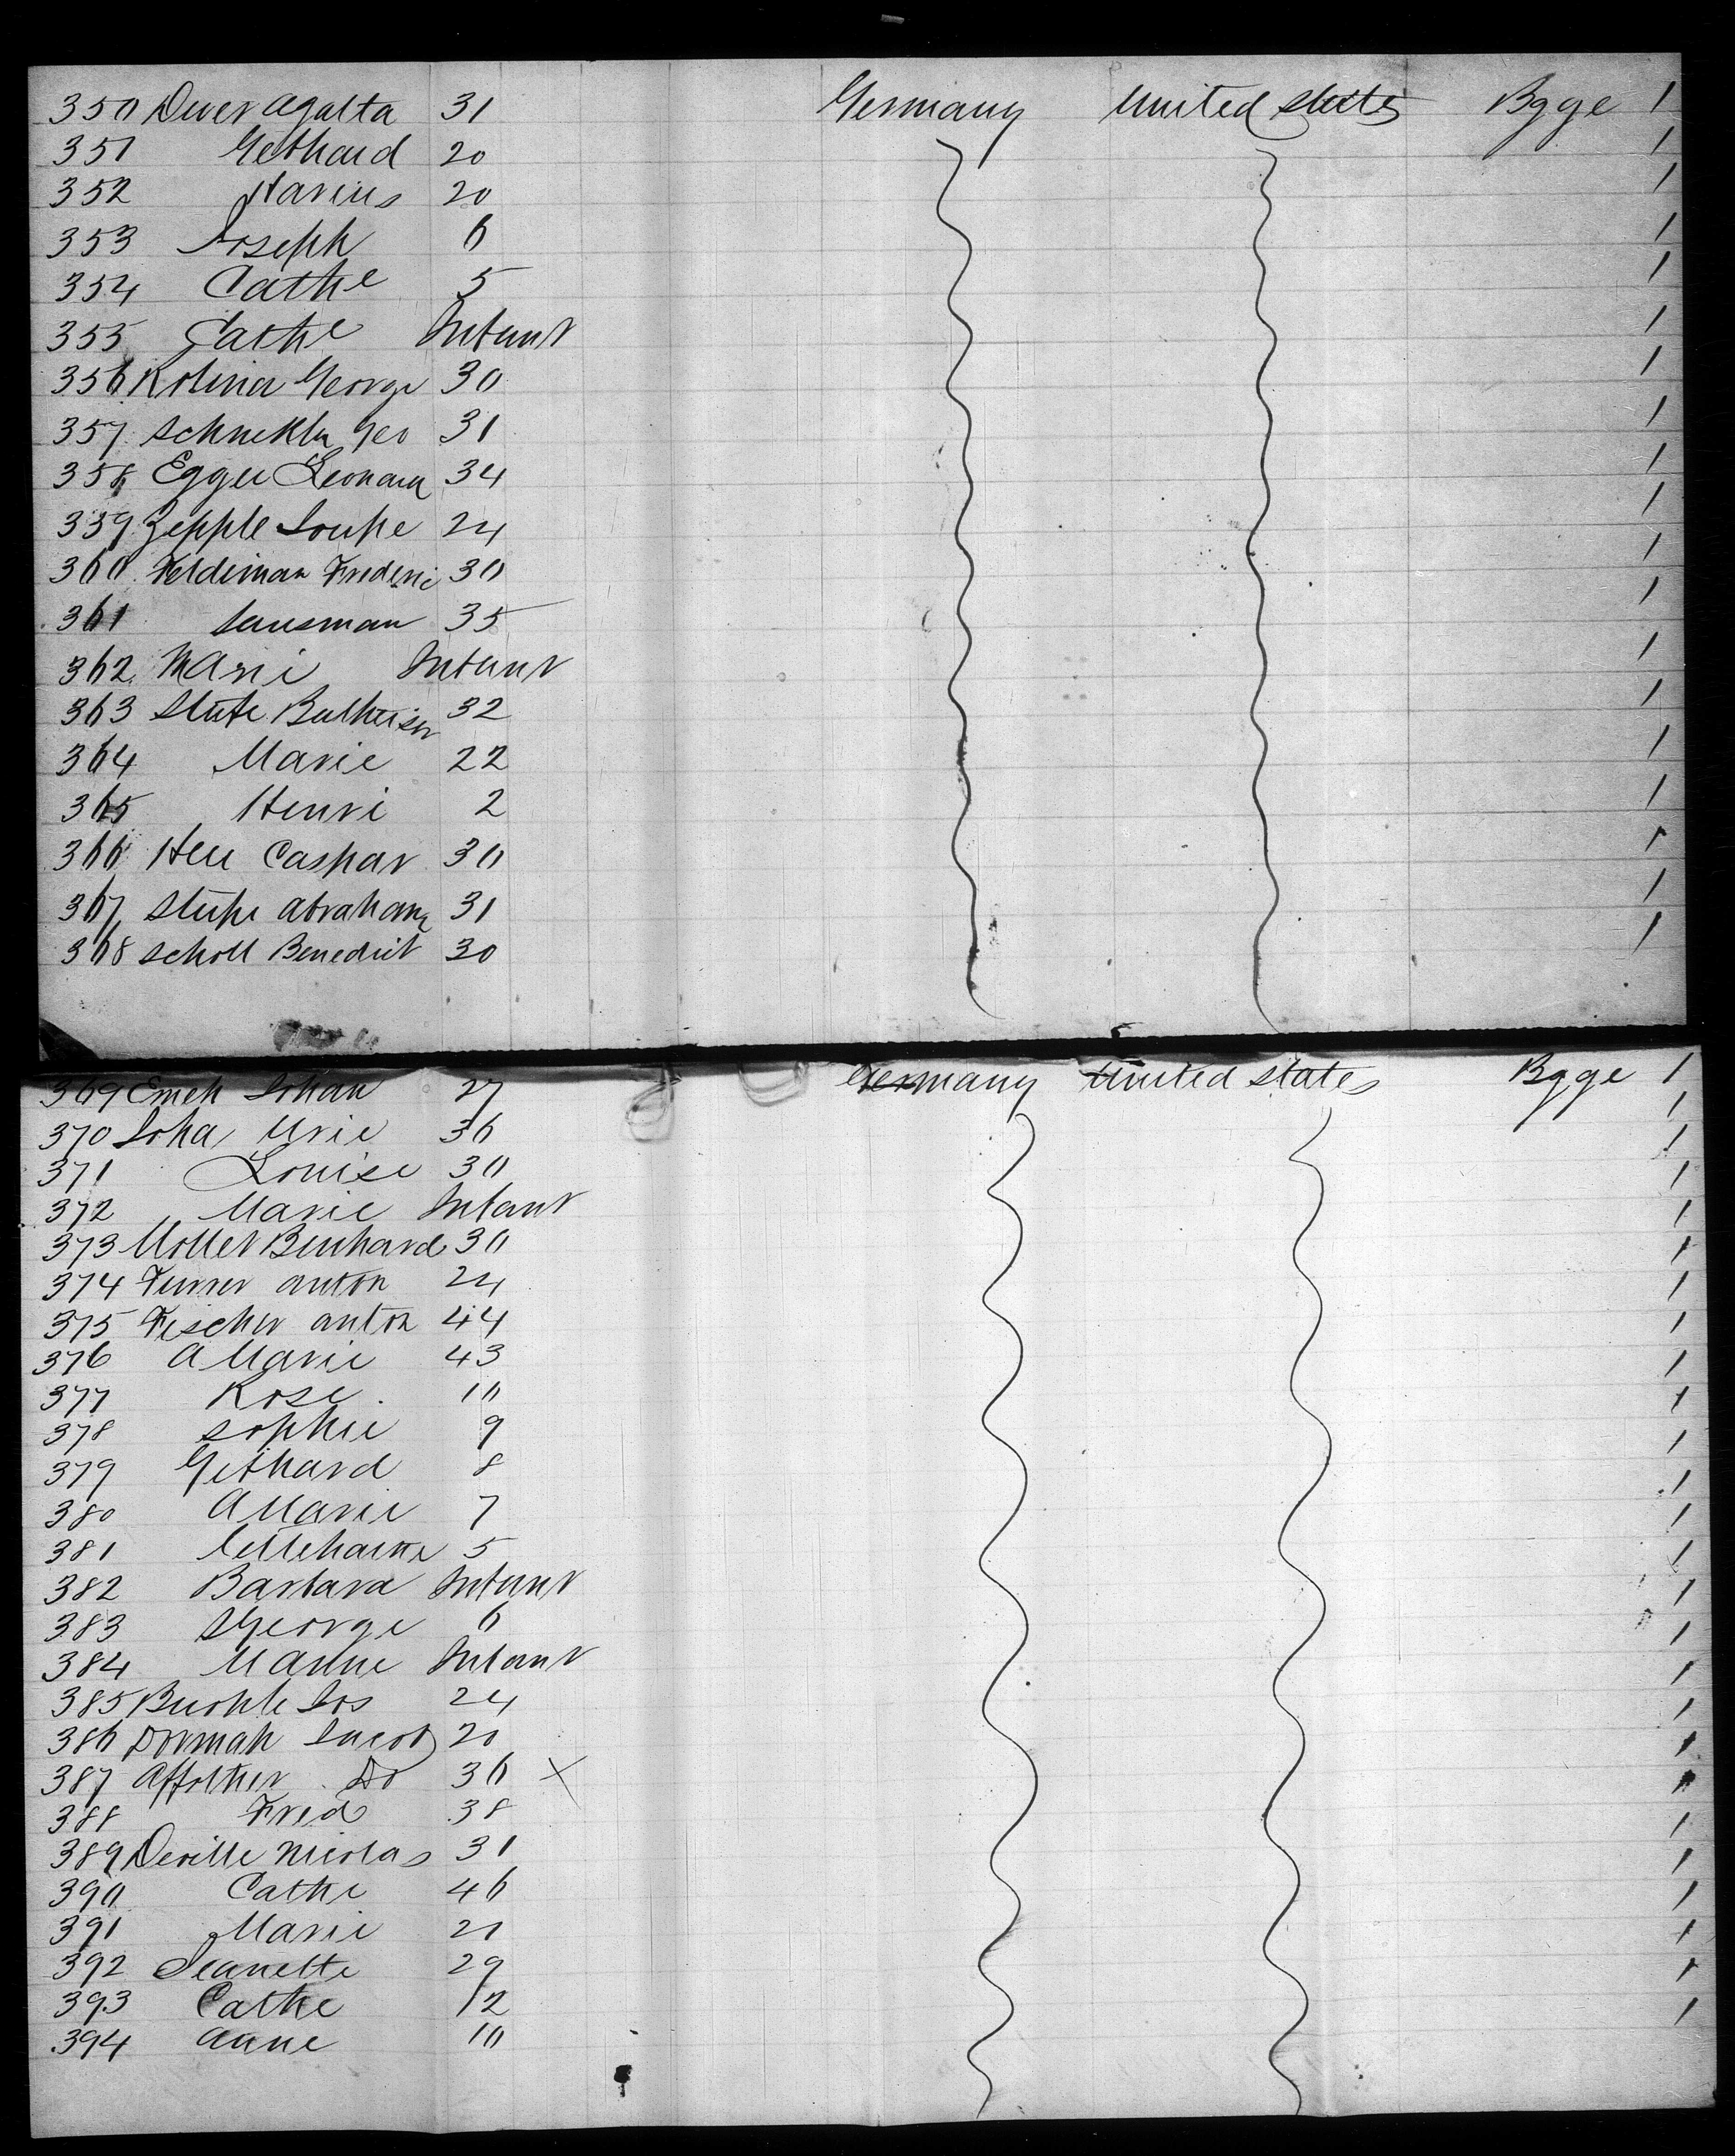 350 Dwer Agatta 31 Germany United States Bgge 1
351 Gethard 20 1
352 Marius 20 1
353 Joseph 6 1
354 Cathe 5 1
355 Cathe Infant 1
356 Kolina George 30 1
357 Geo 31 1
358 Egger Leonard 34 1
359 Zepple 24 1
360 Feldiman Frederic 30 1
361 35 1
362 Marie Infant 1
363 32 1
364 Marie 22 1
365 Henri 2 1
366 Caspar 30 1
367 Abraham 31 1
368 Scholl Benedict 30 1
369 Emch Johan 27 Germany United States Bgge 1
370 36 1
371 Louise 30 1
372 Marie Infant 1
373 Moller Benhard 30 1
374 Furrer Anton 24 1
375 Fischer Anton 44 1
376 A Marie 43 1
377 Rose 10 1
378 Sophie 9 1
379 Gethard 8 1
380 A Marie 7 1
381 5 1
382 Barbara Infant 1
383 George 6 1
384 Infant 1
385 Jos 24 1
386 Dormah Jacob 20 1
387 Affolther Do 36 X 1
388 Fred 38 1
389 Deville Nicolas 31 1
390 Cathe 46 1
391 Marie 21 1
392 Jeanette 29 1
393 Cathe 12 1
394 Anne 10